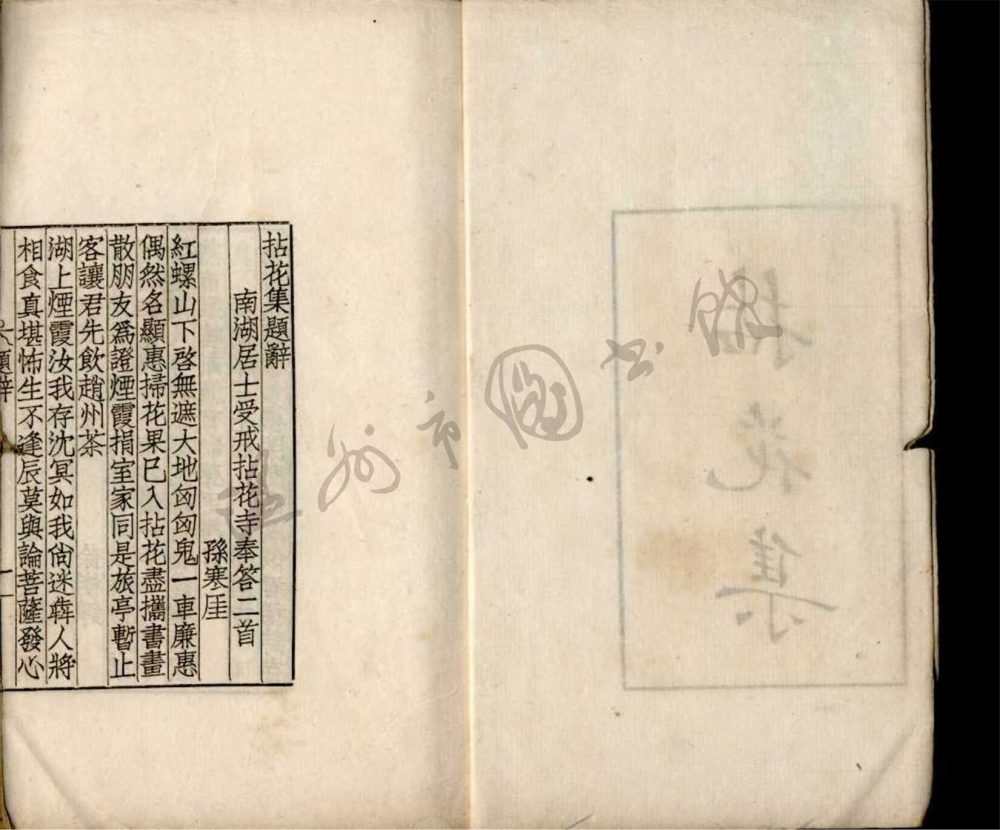 拈花集
州市圖书馆
拈花集題辭
南湖居士受戒拈花寺奉答二首
孫寒厓
紅螺山下啓無遮大地匈匈鬼一車廉惠
偶然名顯惠掃花果已入拈花盡攜書畫
散朋友爲證煙霞捐室家同是旅亭暫止
客讓君先飲趙州茶
湖上煙霞汝我存沈冥如我尙迷犇人將
相食真堪怖生不逢辰莫與論菩薩發心
題辭
一